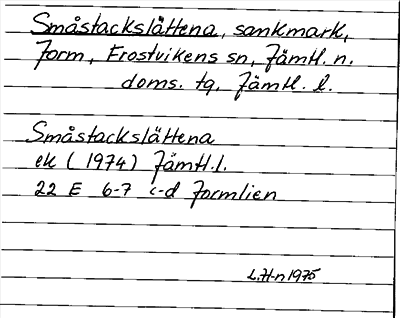 Småstackslättena, sankmark,
Jorm, Frostvikens sn, Jämtl. n.
doms. tg, Jämtl. l.
Småstackslättena
ek (1974) Jämtl. l.
22 E 6-7 c-d Jormlien
L.H-n 1975